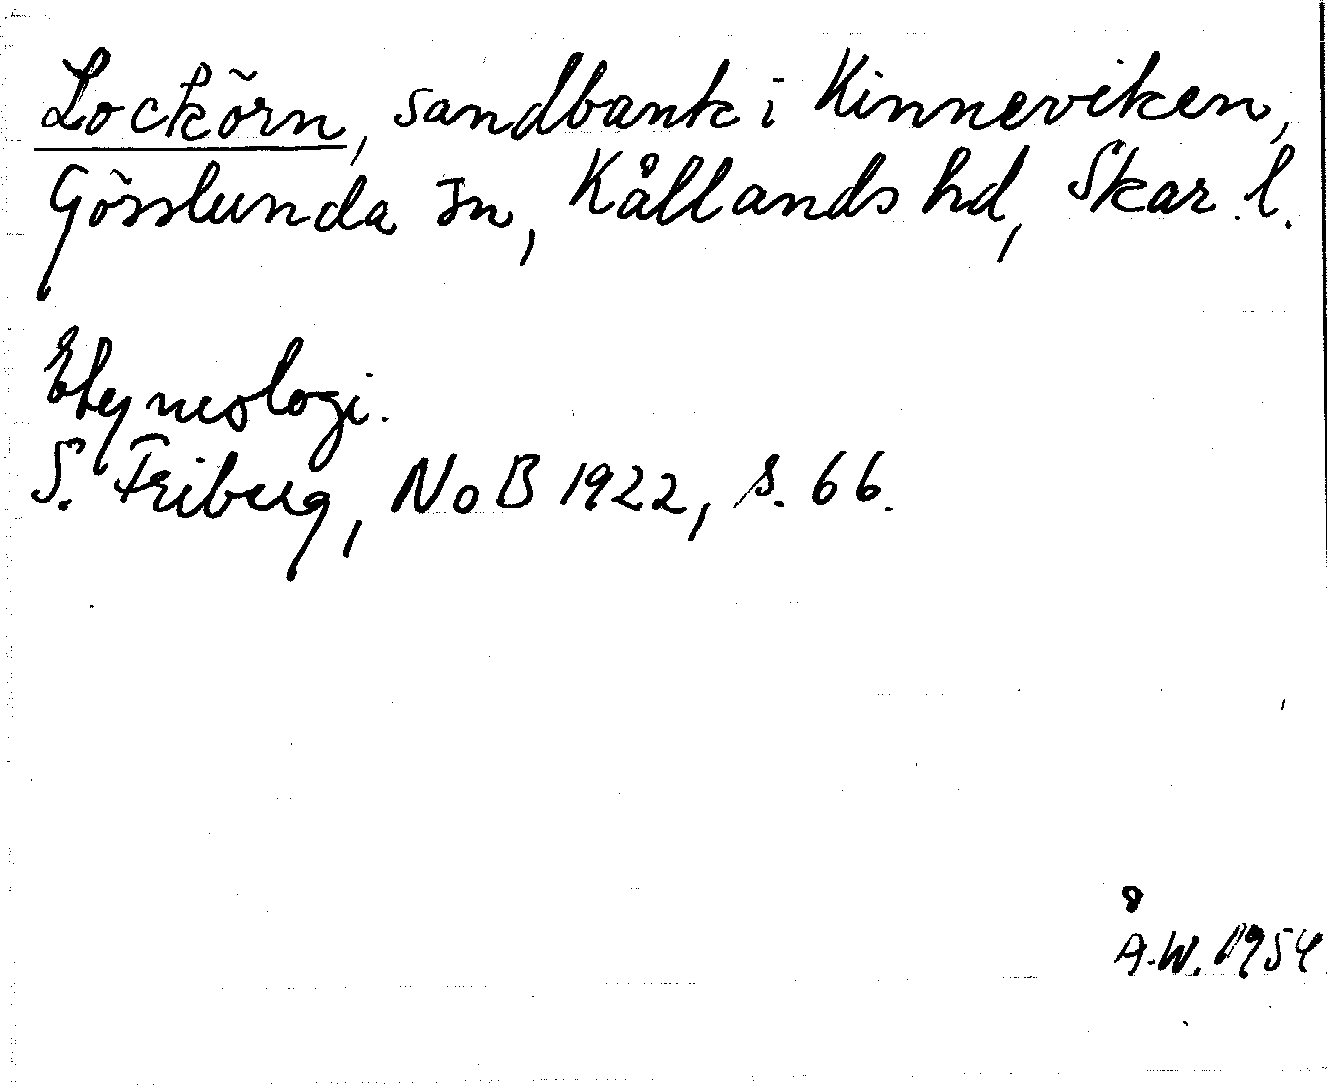 Lockörn, sandbank i Kinneviken,
Gösslunda sn, Kållands hd, Skar. l.
Etymologi.
S. Friberg, NoB 1922, s. 66.
Å.W. 1954